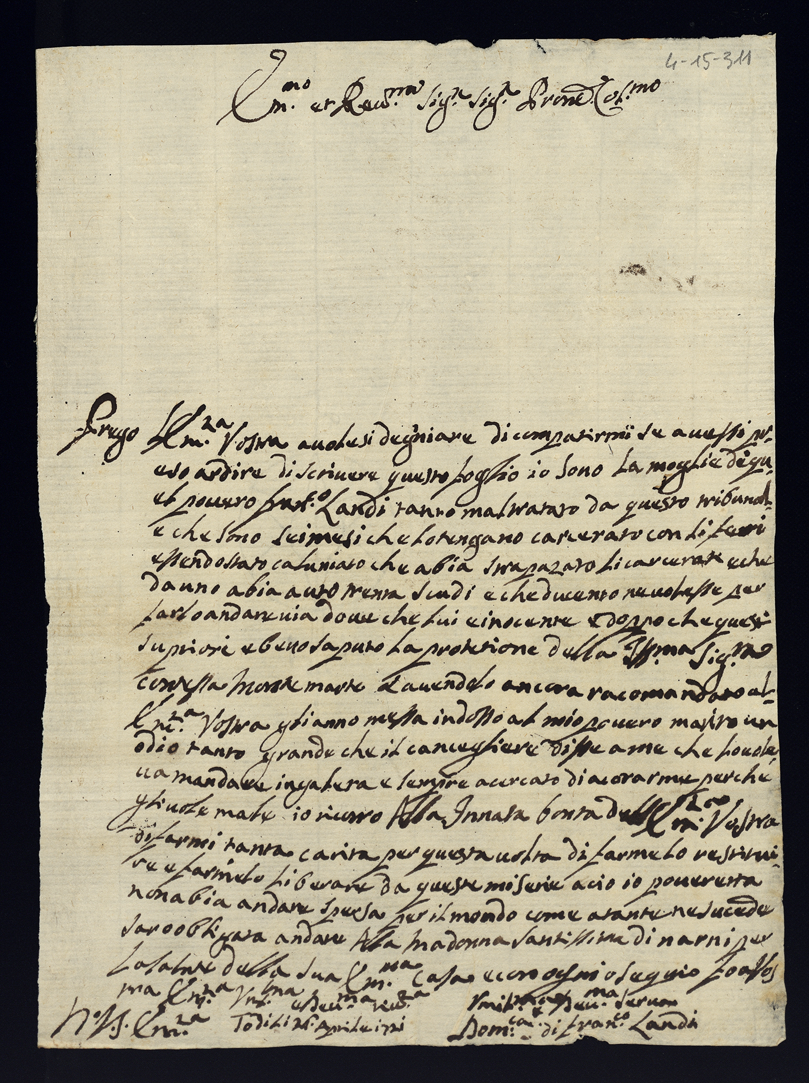 4-15-311
Em.mo et Reu.mo Sig.re Sig.re Prone Col.mo
Prego Em.za Vostra auolesi degniare di compatirmi se auessi pr
eso ardire di scriuere questo foglio io sono la moglie di qu
el pouero Fran.co Landi tanto maltratato da questo tribunal
e che sono sei mesi che lo tengano carcerato con li ferri
essendo stato caluniato che abia strapazato li carcerati e che
da uno abia auto trenta scudi e che ducento ne uolesse per
farlo andare uia doue che lui e inocente e doppo che questi
supriori ebeno saputo la protetione della Ill.ma Sig.ra
Contessa Monte marte e auendolo ancora racomandato al
Em.za Vostra gli anno messa indosso al mio pouero marito un
odio tanto grande che il cancegliere disse a me che lo uole
ua mandare in galera e sempre a cercato di acorarme perche
gli uole male io ricorro Alla Innata bonta dell Em.za Vostra
di farmi tanta carita per questa uolta di farmelo restitui
re e farmelo liberare da queste miserie acio io poueretta
non abia andare spersa per il mondo come a tante ne sucede
saro obligata andare Alla Madonna Santissima di narni per
la salute della sua Em.ma Casa e con ogni osequio fo a Vos
Em.za Um.ma e Deu.ma reu.za
Todi li Aprile
Umil.ma e Deu.ma Serua
Dom.ca di Fran.co Landi